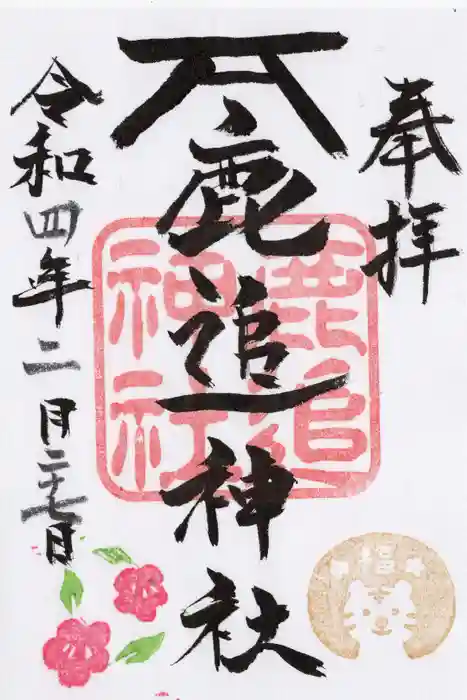 奉拝
鹿追神社
鹿追神社
令和四年二月二十七日
福